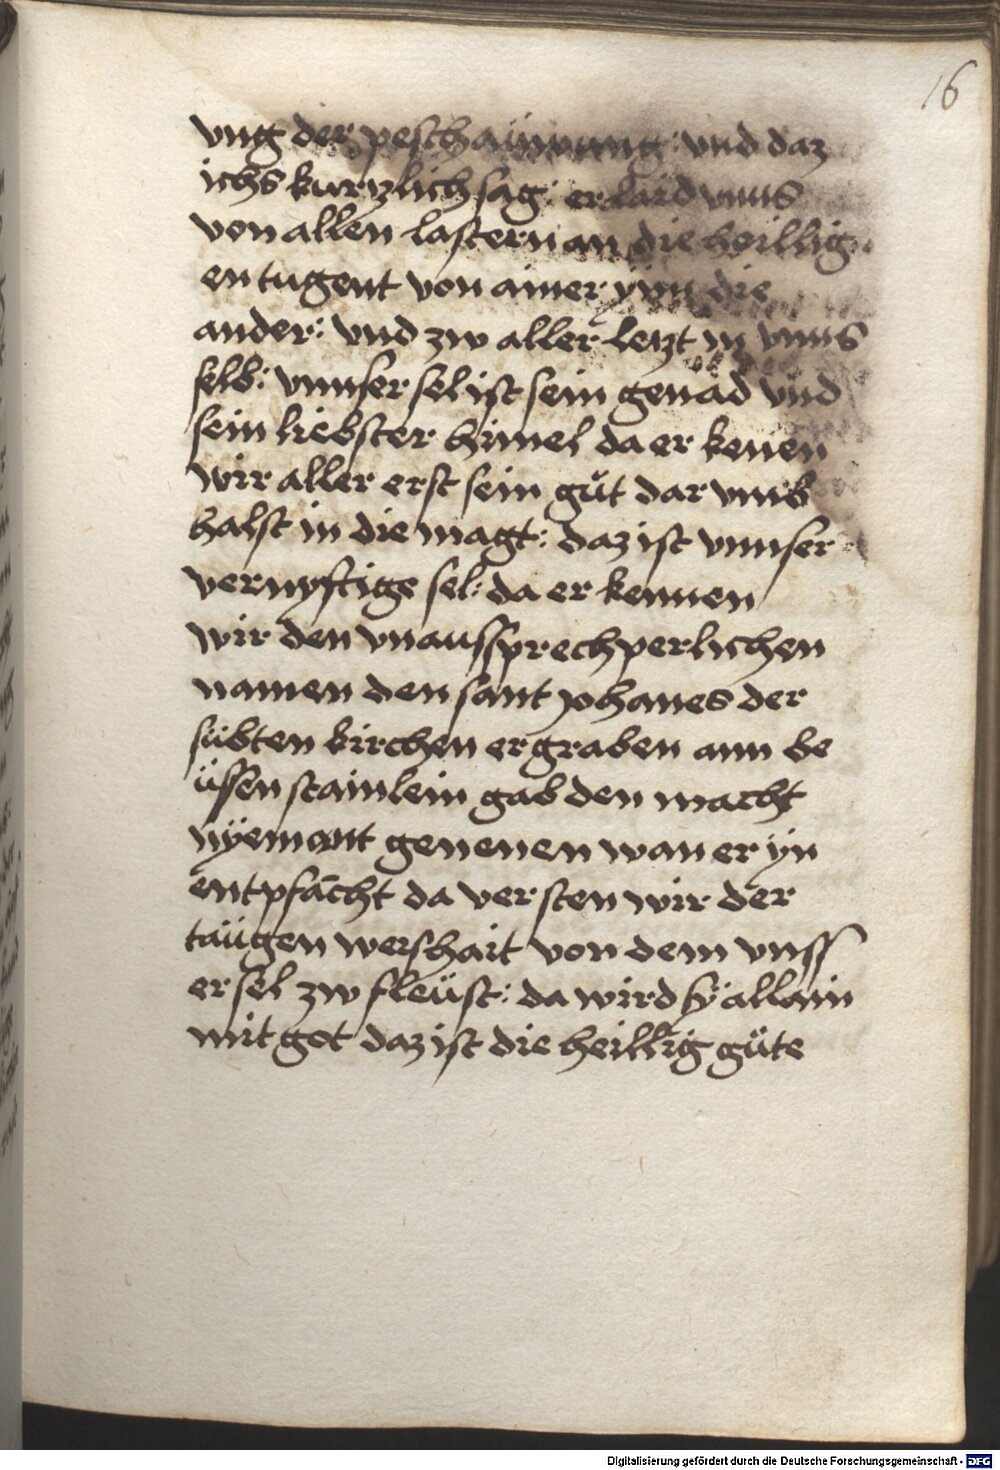 16
vng der peschaüwung : vnd daz
ichs kurtzlich sag : er laid vnns
von allen lastern an die heillig
en tugent von ainer ynn die
ander : vnd zw aller letzt in vnns
selb : vnnser sel ist sein genad vnd
sein liebster himel da er kenen
wir aller erst sein güt dar vmb
halst in die magt : daz ist vnnser
vernyftige sel : da er kennen
wir den vnaussprechperlichen
namen den sant johanes der
sübten kirchen ergraben ann be
üssen stainlein gab den macht
nÿemantt genenen wan er ÿn
entpfächt da versten wir der
taügen weishait von dem vnss
er sel zw fleüst : da wird sÿ allain
mit got daz ist die heillig güte
Digitalisierung gefördert durch die Deutsche Forschungsgemeinschaft - DFG